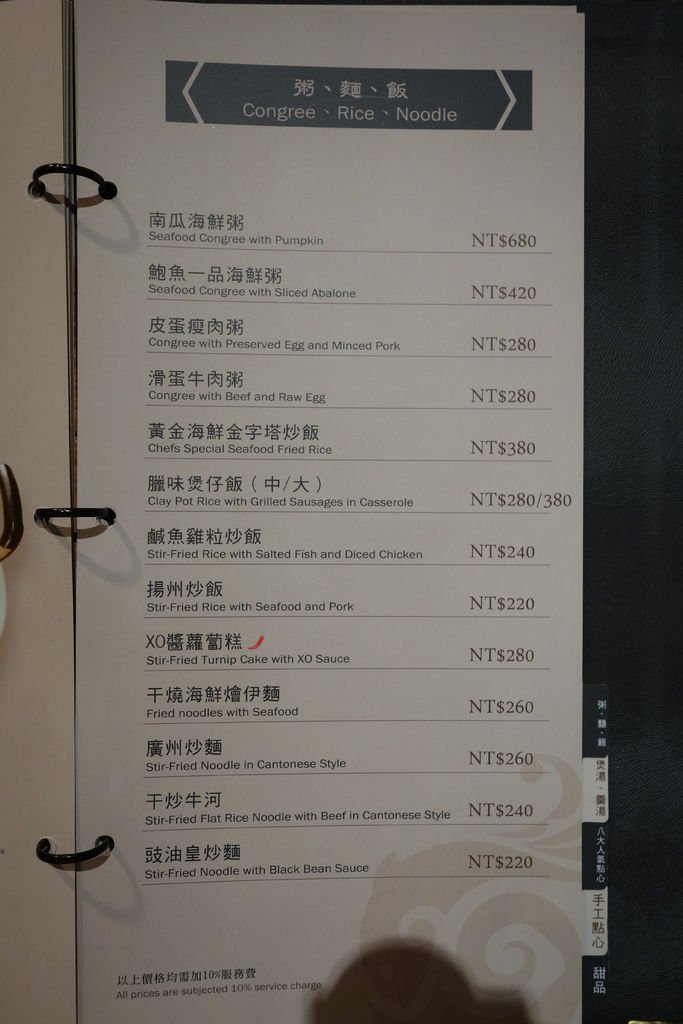 粥、麵、飯
Congree、Rice、Noodle
南瓜海鮮粥
Seafood Congree with Pumpkin
NT$680
鮑魚一品海鮮粥
Seafood Congree with Sliced Abalone
NT$420
皮蛋瘦肉粥
Congree with Preserved Egg and Minced Pork
NT$280
滑蛋牛肉粥
Congree with Beef and Raw Egg
NT$280
黃金海鮮金字塔炒飯
Chefs Special Seafood Fried Rice
NT$380
臘味煲仔飯(中/大)
Clay Pot Rice with Grilled Sausages in Casserole
NT$280/380
鹹魚雞粒炒飯
Stir-Fried Rice with Salted Fish and Diced Chicken
NT$240
揚州炒飯
Stir-Fried Rice with Seafood and Pork
NT$220
XO醬蘿蔔糕
Stir-Fried Turnip Cake with XO Sauce
NT$280
干燒海鮮燴伊麵
Fried noodles with Seafood
NT$260
廣州炒麵
Stir-Fried Noodle in Cantonese Style
NT$260
干炒牛河
Stir-Fried Flat Rice Noodle with Beef in Cantonese Style
NT$240
豉油皇炒麵
Stir-Fried Noodle with Black Bean Sauce
NT$220
以上價格均需加10%服務費
All prices are subjected 10% service charge
粥、麵、飯
煲湯、羹湯
八大人氣點心
手工點心
甜品